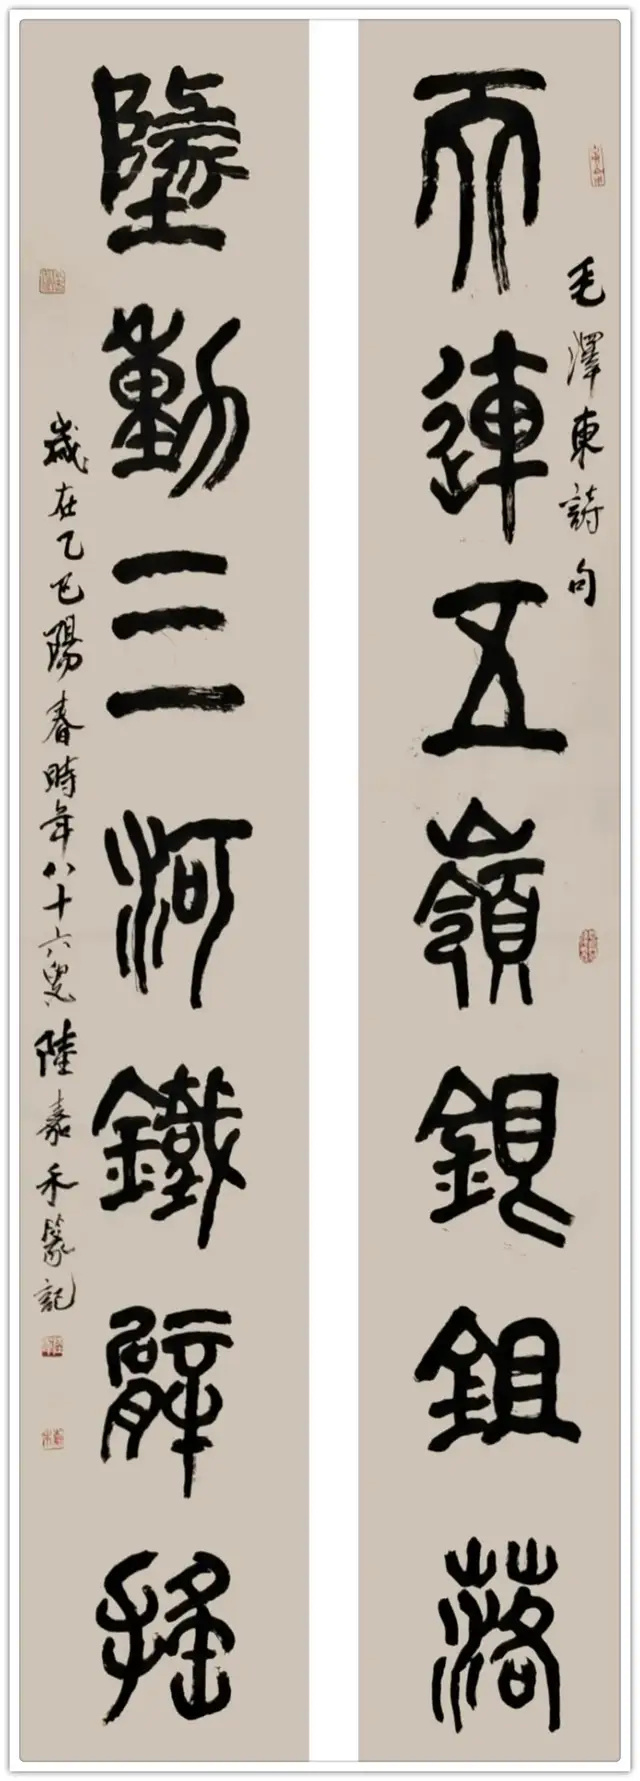 毛澤東詩句
天連五嶺銀鉏落
墬動三河鐵臂搖
歲在乙巳陽春時年八十六叟陸嘉禾篆記